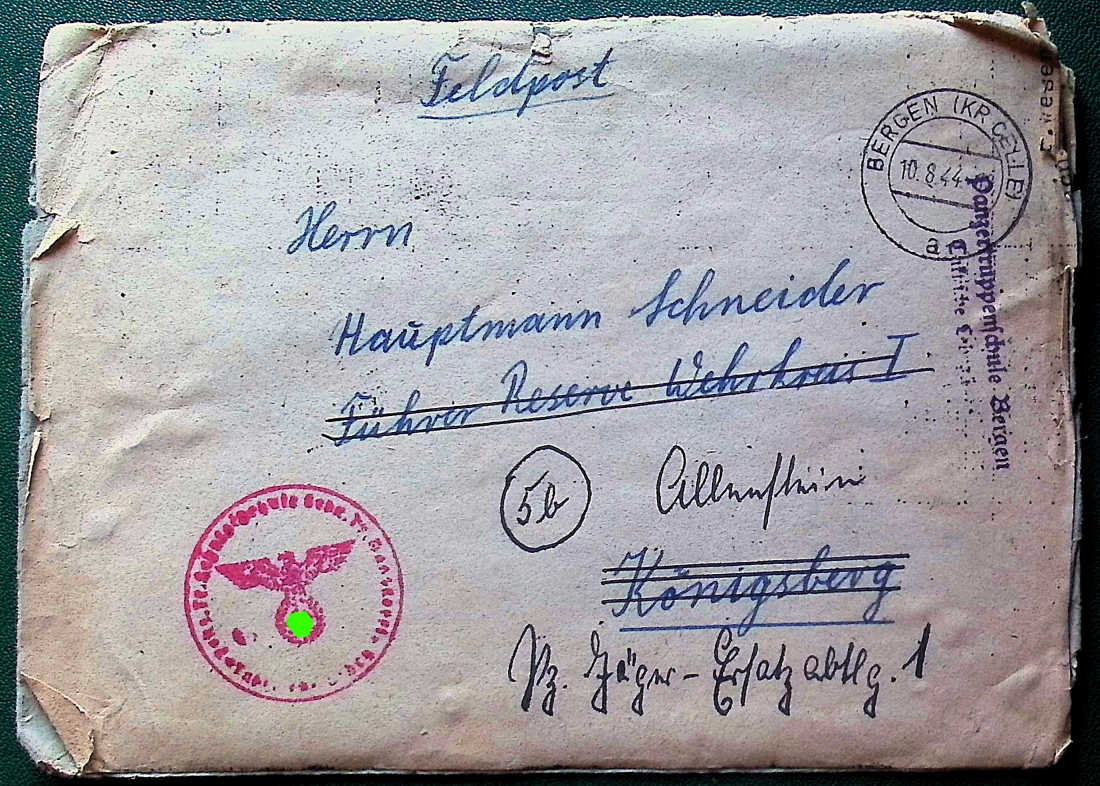 Feldpost
BERGEN (KR. CELLE)
10.8.44
a
Panzertruppenschule Bergen
Herrn
Hauptmann Schneider
Führer Reserve Wehrkreis I
5b Allenstein
Königsberg
Pz. Jäger-Ersatzabtlg. 1